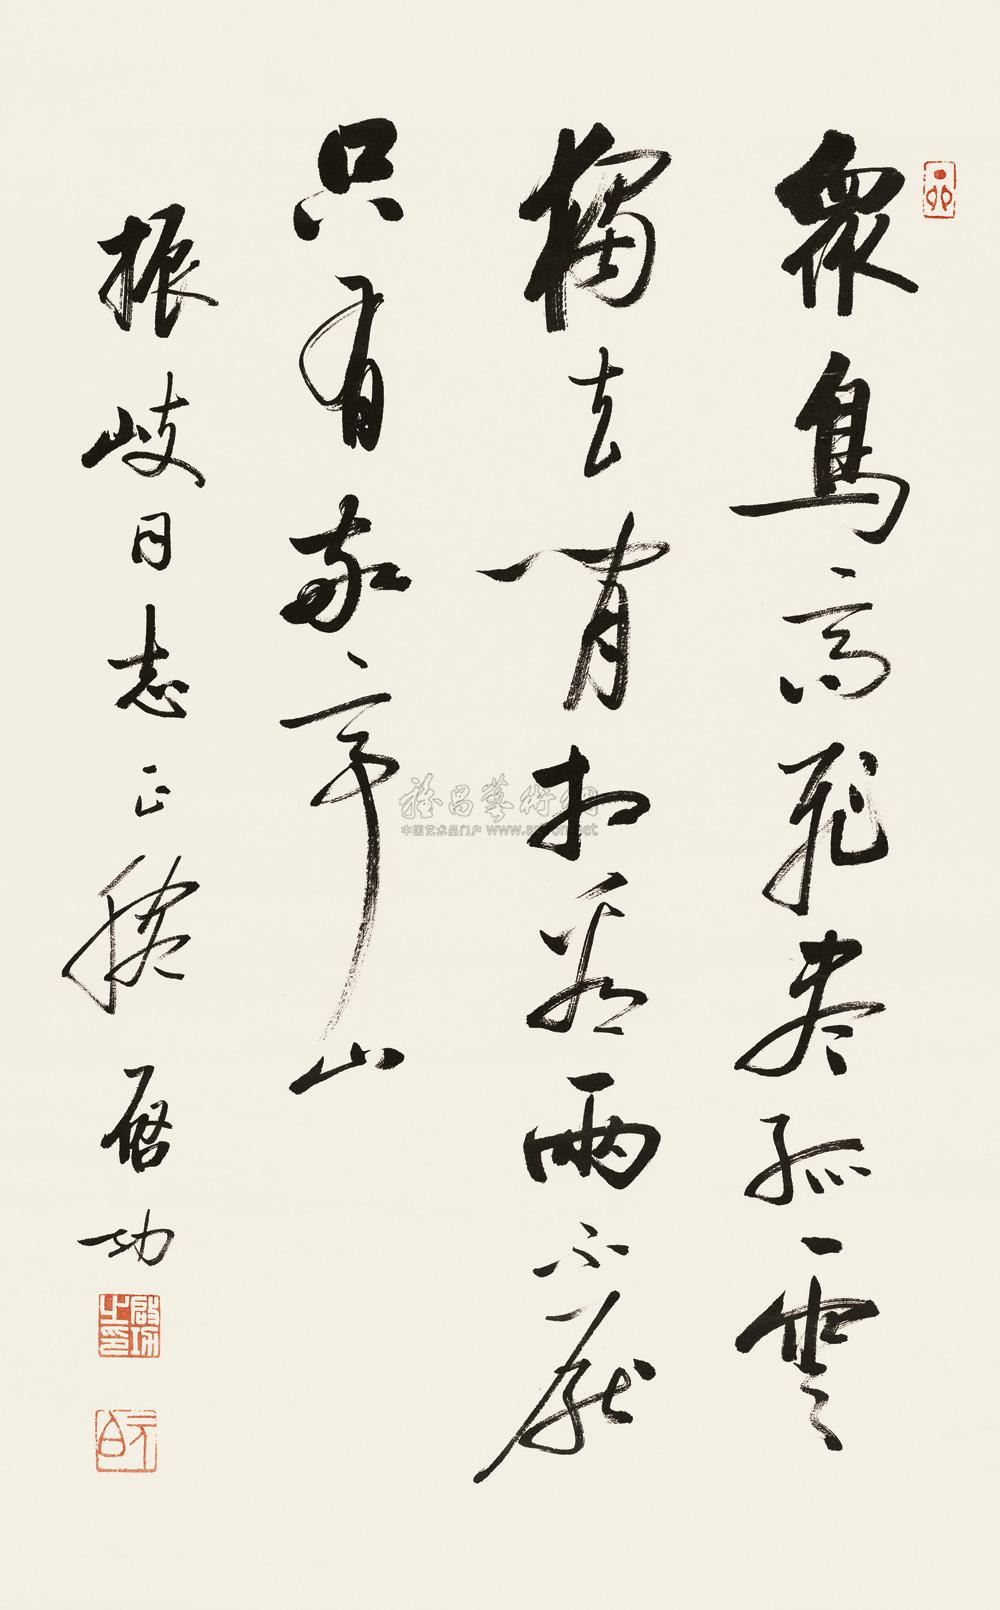 眾鳥高飛盡孤雲
獨去閒相看兩不厭
只有敬亭山
振岐同志正腕 启功
啟功之印
元白
雅昌藝術網
中国艺术品门户 www.artron.net